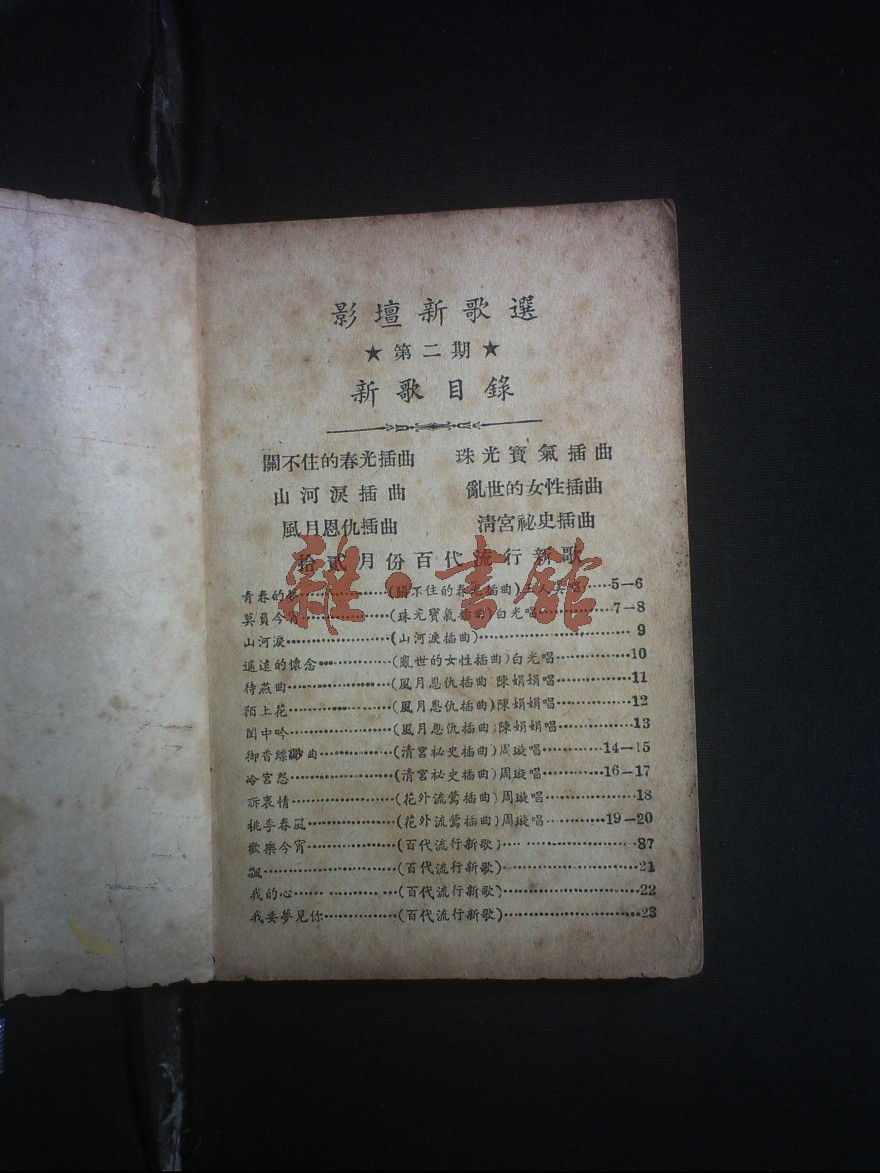 影壇新歌選
★第二期★
新歌目錄
關不住的春光插曲 珠光寶氣插曲
山河淚插曲 亂世的女性插曲
風月恩仇插曲 清宮祕史插曲
拾貳月份百代流行新歌
青春的夢(關不住的春光插曲)王人美唱5-6
莫負今宵(珠光寶氣插曲)白光唱7-8
山河淚(山河淚插曲)9
遙遠的懷念(亂世的女性插曲)白光唱10
待燕曲(風月恩仇插曲 陳娟娟唱11
陌上花(風月恩仇插曲)陳娟娟唱12
閨中吟(風月恩仇插曲 陳娟娟唱13
御香縹緲曲(清宮祕史插曲)周璇唱14-15
冷宮怨(清宮祕史插曲)周璇唱16-17
訴衷情(花外流鶯插曲)周璇唱18
桃李春風(花外流鶯插曲)周璇唱19-20
歡樂今宵(百代流行新歌)87
飄(百代流行新歌)21
我的心(百代流行新歌)22
我要夢見你(百代流行新歌)23
雜·書館